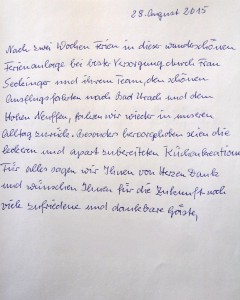 28. August 2015
Nach zwei Wochen Ferien in dieser wunderschönen
Ferienanlage bei bester Versorgung durch Frau
und ihrem Team, den schönen
Ausflugsfahrten nach Bad Urach und dem
Hohen Neuffen, fahren wir wieder in unseren
Alltag zurück. Besonders hervorgehoben seien die
leckeren und apart zubereiteten Küchenkreationen
Für alles sagen wir Ihnen von Herzen Danke
und wünschen Ihnen für die Zukunft noch
viele zufriedene und dankbare Gäste,